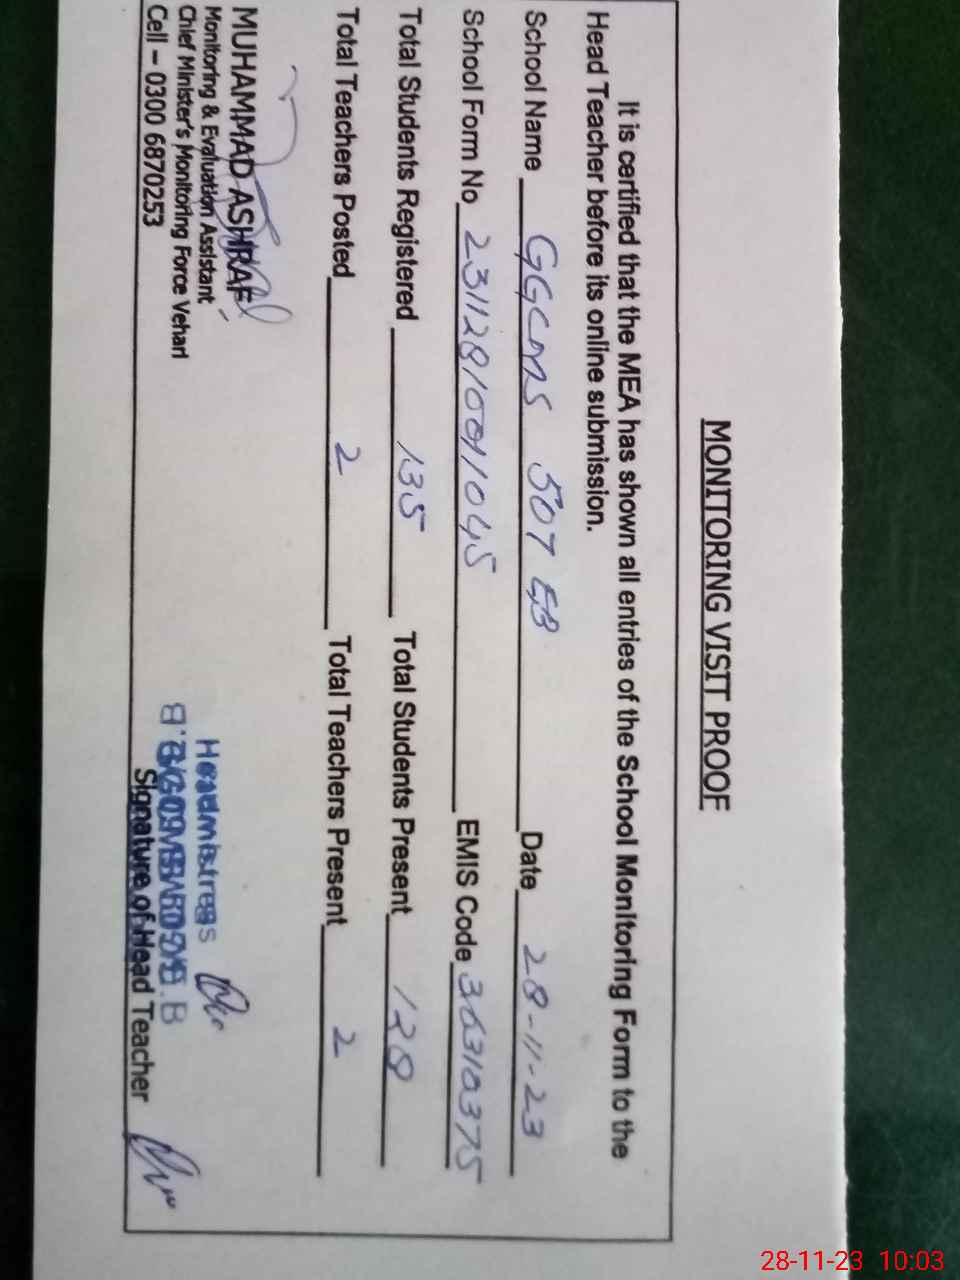 MONITORING VISIT PROOF
It is certified that the MEA has shown all entries of the School Monitoring Form to the
Head Teacher before its online submission.
School Name GGCMS 507 EB Date 28-11-23
School Form No 231128100411045 EMIS Code 36310375
Total Students Registered 135 Total Students Present 128
Total Teachers Posted 2 Total Teachers Present 2
MUHAMMAD ASHRAF
Monitoring & Evaluation Assistant
Chief Minister's Monitoring Force Vehari
Cell – 0300 6870253
Headmistress
Signature of Head Teacher
28-11-23 10:03